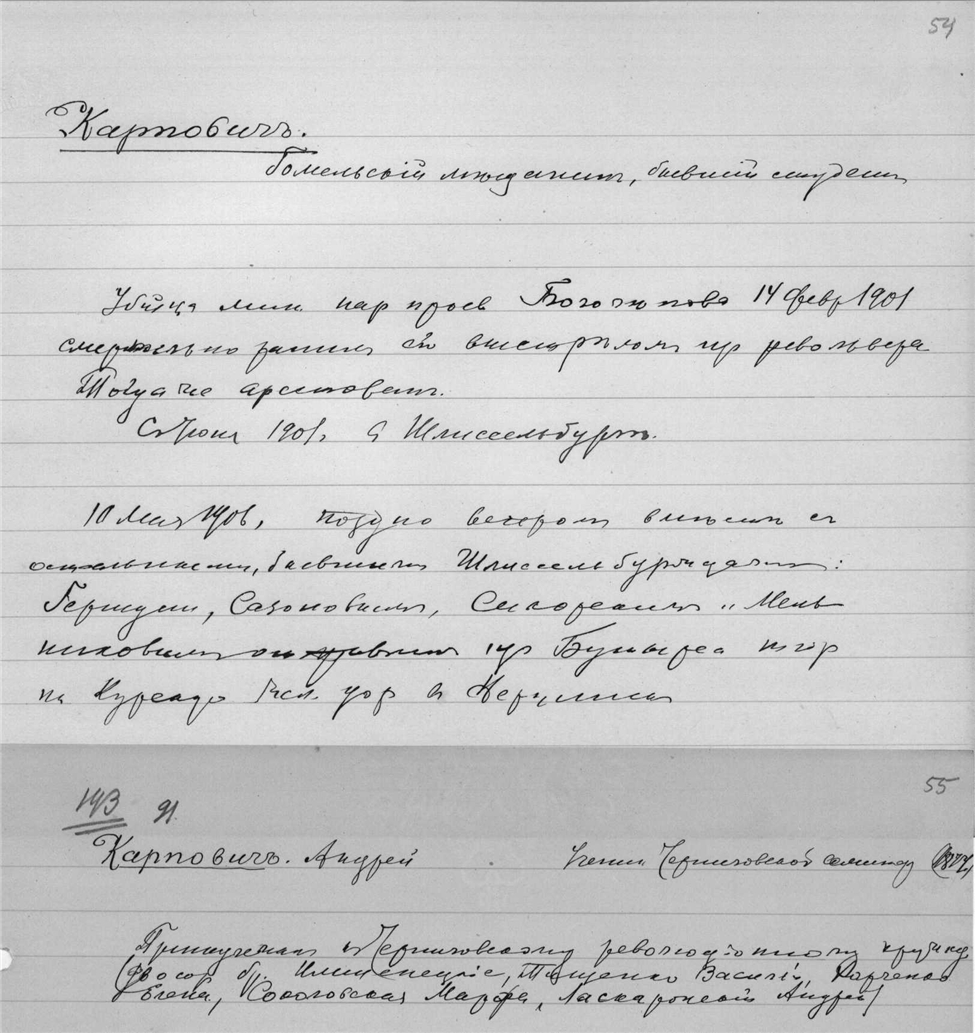 54
Карповичъ.
Гомельскій мѣщанинъ, бывшій студентъ
Убійца мин нар просв Боголѣпова 14 февр 1901
смертельно ранилъ его выстрѣломъ изъ револьвера
Тогда же арестованъ.
1901. въ Шлиссельбургѣ.
10 мая 1906, поздно вечеромъ вмѣстѣ съ
остальными, бывшими Шлиссельбуржцами:
Гершуни, Сазоновымъ, Сикорскимъ и Мель
никовымъ изъ Бутырск тюр
на Курскую жел. дор въ Нерчинскъ
55
193 91.
Карповичъ. Андрей Черниговской семинар
къ Черниговскому революціонному кружку
Тищенко Василій, Харченко
Елена, Соколовская Марфа, Ласкаронскій Андрей)